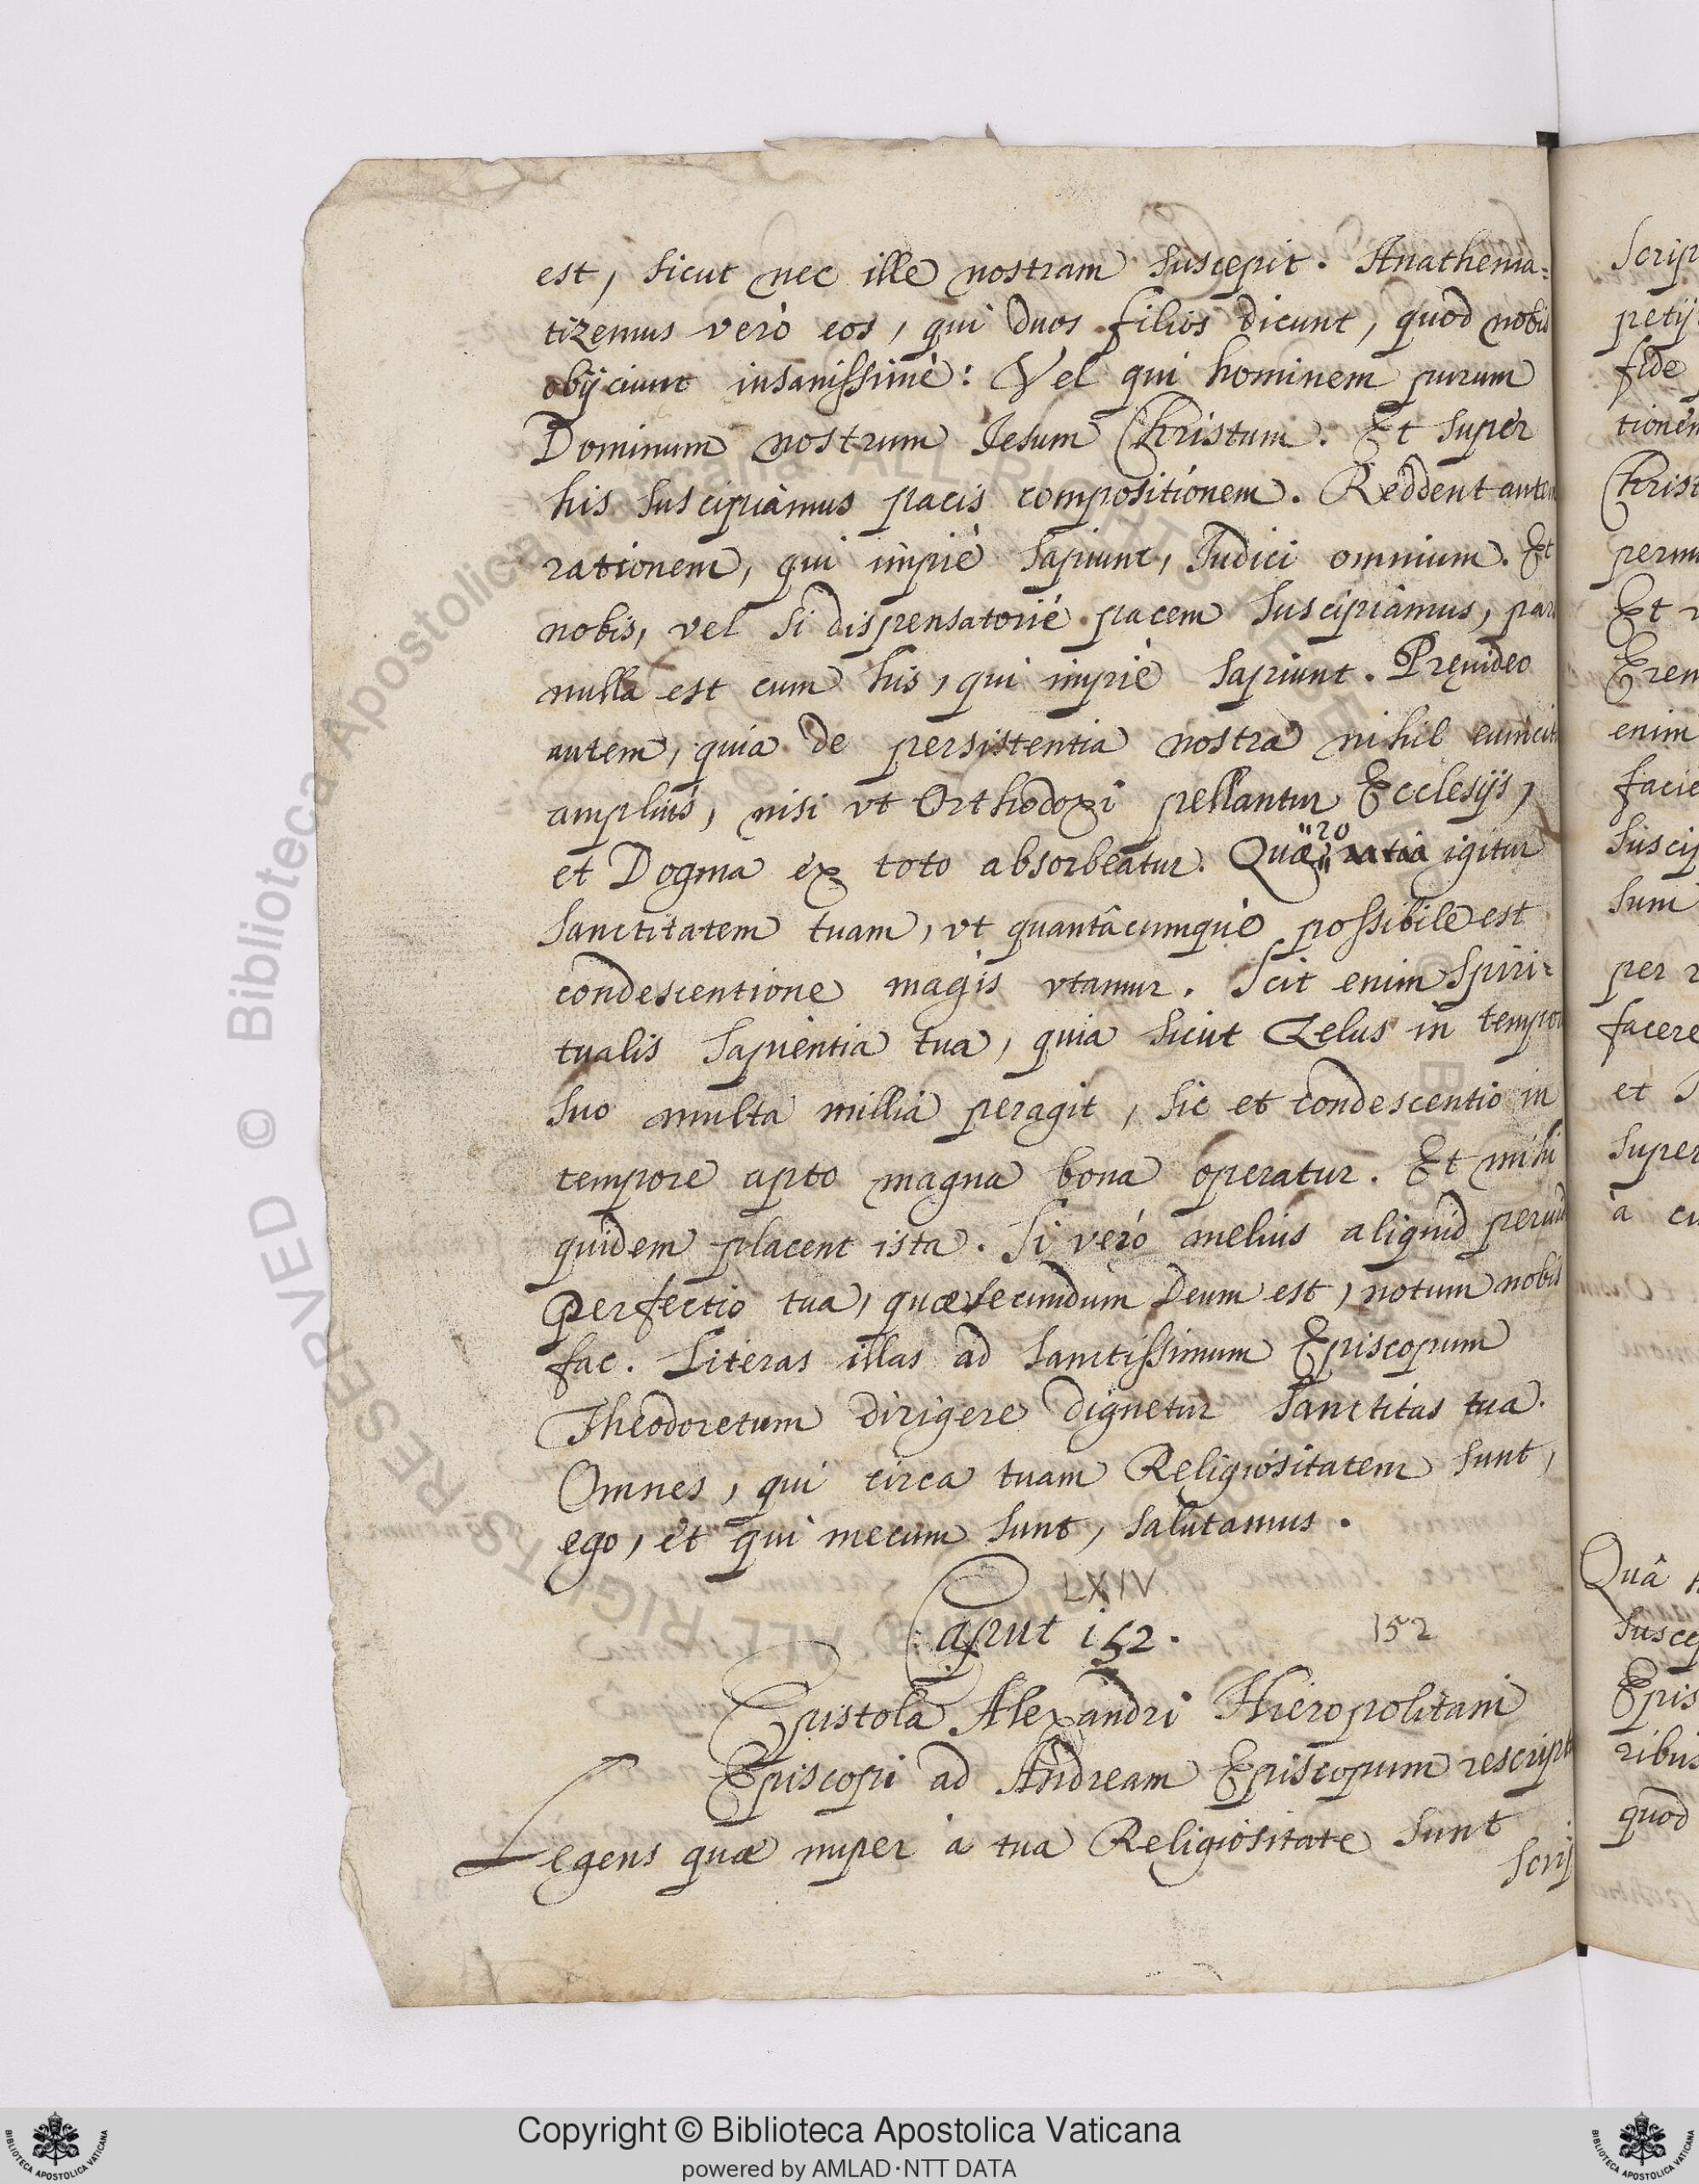 est, sicut nec ille nostram suscepit. Anathema=
tizemus verò eos, qui duos filios dicunt, quod nobis
obijciunt insanissimè: Vel qui hominem purum
Dominum nostrum Iesum Christum. Et super
his suscipiamus pacis compositionem. Reddent autem
rationem, qui impiè sapiunt, Iudici omnium. Et
nobis, vel si dispensatoriè pacem suscipiamus, pars
nulla est cum his, qui impiè sapiunt. Pręuideo
autem, quia de persistentia nostra nihil
amplius, nisi vt Orthodoxi pellantur Ecclesijs,
et Dogma ex toto absorbeatur. Quæ ro igitur
Sanctitatem tuam, vt quantâcumquè possibile est
condescentione magis vtamur. Scit enim Spiri=
tualis Sapientia tua, quia sicut Zelus in tempore
suo multa millia peragit, sic et condescentio in
tempore apto magna bona operatur. Et mihi
quidem placent ista. Si verò melius aliquid
Perfectio tua, quæ secundùm Deum est, notum nobis
fac. Literas illas ad Sanctissimum Episcopum
Theodoretum dirigere dignetur Sanctitas tua.
Omnes, qui circa tuam Religiositatem sunt,
ego, et qui mecum sunt, salutamus.
LXIV
Caput 152. 152
Epistola Alexandri Hieropolitani
Episcopi ad Andream Episcopum rescripta
Legens quæ nuper à tua Religiositate sunt
scrip
Scrip
petij
fide
tionem
Christ
perm
Et
Erem
enim
facie
suscip
sum
per
facere
et
super
à
Quâ
suscep
Epis
ribus
quod
© Biblioteca Apostolica Vaticana ALL RIGHTS RESERVED
Copyright © Biblioteca Apostolica Vaticana
powered by AMLAD·NTT DATA
BIBLIOTECA APOSTOLICA VATICANA
BIBLIOTECA APOSTOLICA VATICANA